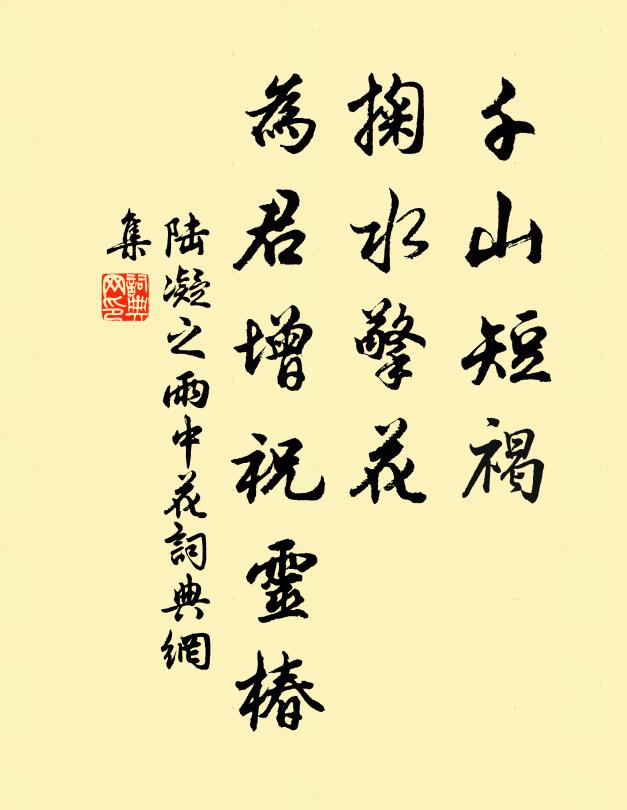 千山短褐
掬水擎花
為君增祝靈椿
陆凝之雨中花詞典網
集
詞典
网印